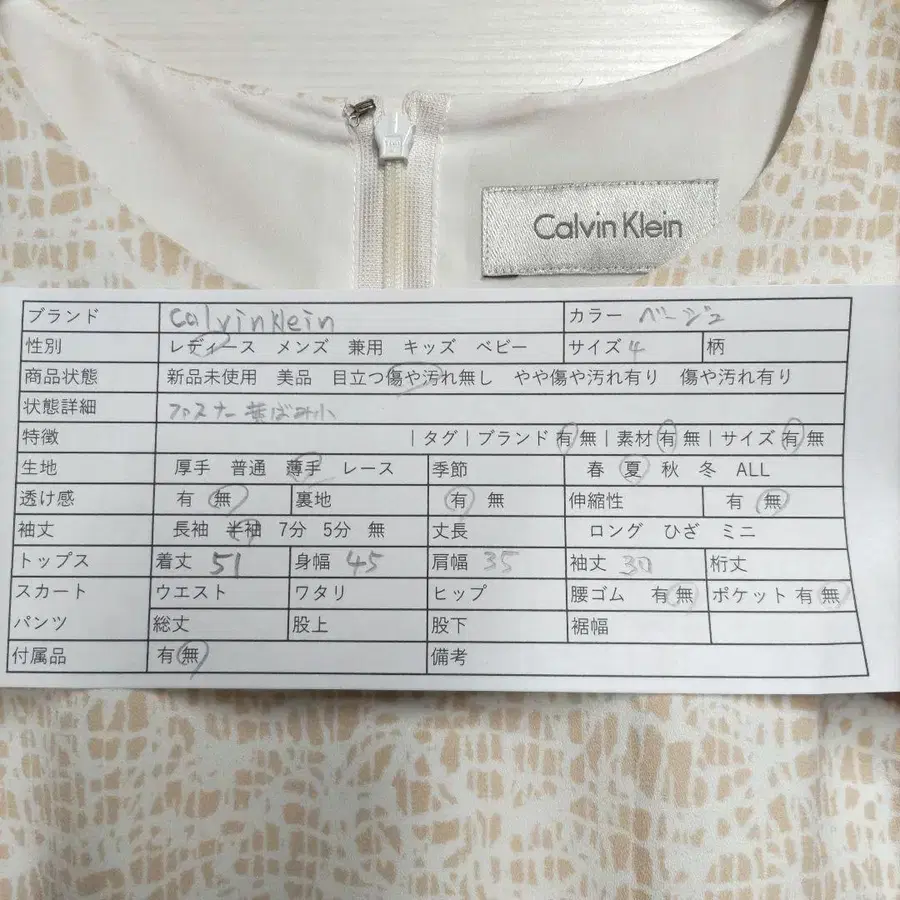 Calvin Klein
ブランド calvinklein カラー ベージュ
性別 レディース メンズ 兼用 キッズ ベビー サイズ 4 柄
商品状態 新品未使用 美品 目立つ傷や汚れ無し やや傷や汚れ有り 傷や汚れ有り
状態詳細 ファスナー黄ばみ小
特徴 | タグ | ブランド 有 無 | 素材 有 無 | サイズ 有 無
生地 厚手 普通 薄手 レース 季節 春 夏 秋 冬 ALL
透け感 有 無 裏地 有 無 伸縮性 有 無
袖丈 長袖 半袖 7分 5分 無 丈長 ロング ひざ ミニ
トップス 着丈 51 身幅 45 肩幅 35 袖丈 30 裄丈
スカート ウエスト ワタリ ヒップ 腰ゴム 有 無 ポケット 有 無
パンツ 総丈 股上 股下 裾幅
付属品 有 無 備考